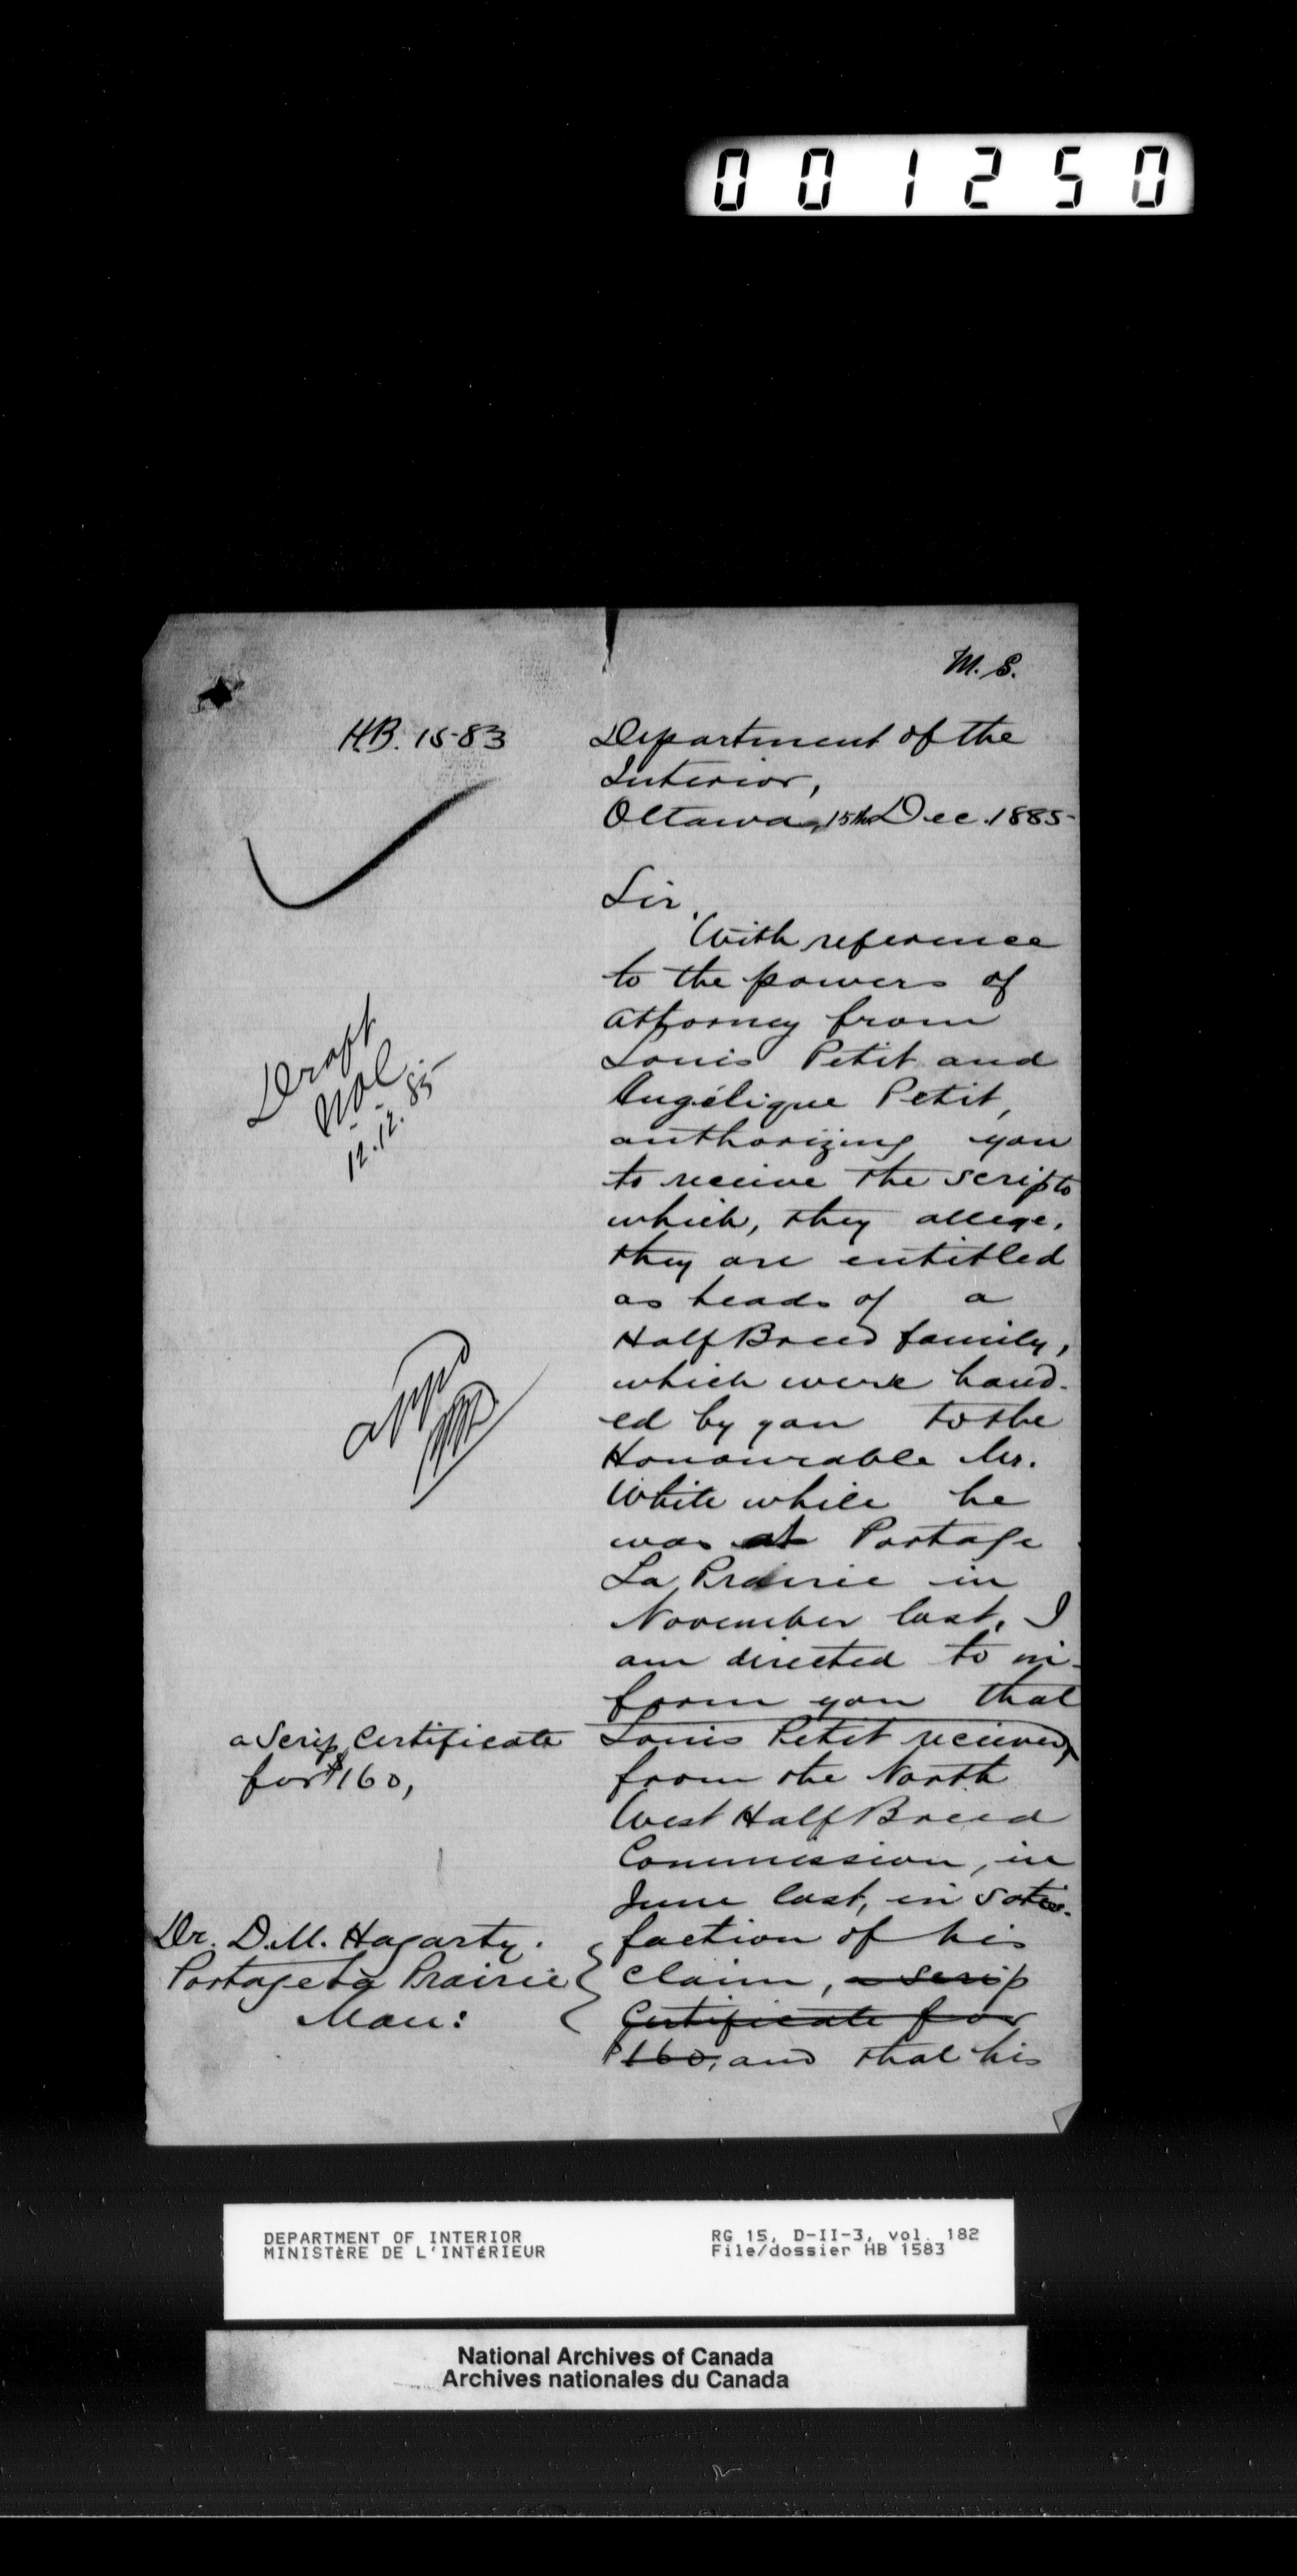 001250
M.S.
H.B. 1583
Department of the
Interior,
Ottawa, 15th Dec. 1885
Sir,
With reference
to the powers of
attorney from
Louis Petit and
Angélique Petit,
authorizing you
to receive the scrip to
which, they allege,
they are entitled
as heads of a
Half Breed family,
which were hand-
ed by you to the
Honourable Mr.
White while he
was at Portage
La Prairie in
November last, I
am directed to in-
form you that
Louis Petit received
from the North
West Half Breed
Commission, in
June last, in satis-
faction of his
claim, a scrip
Certificate for
$160, and that his
Draft
12.12.85
appd
a Scrip Certificate
for $160,
Dr. D.M. Hagarty.
Portage La Prairie
Man:
DEPARTMENT OF INTERIOR
MINISTÈRE DE L'INTÉRIEUR
RG 15, D-II-3, vol. 182
File/dossier HB 1583
National Archives of Canada
Archives nationales du Canada